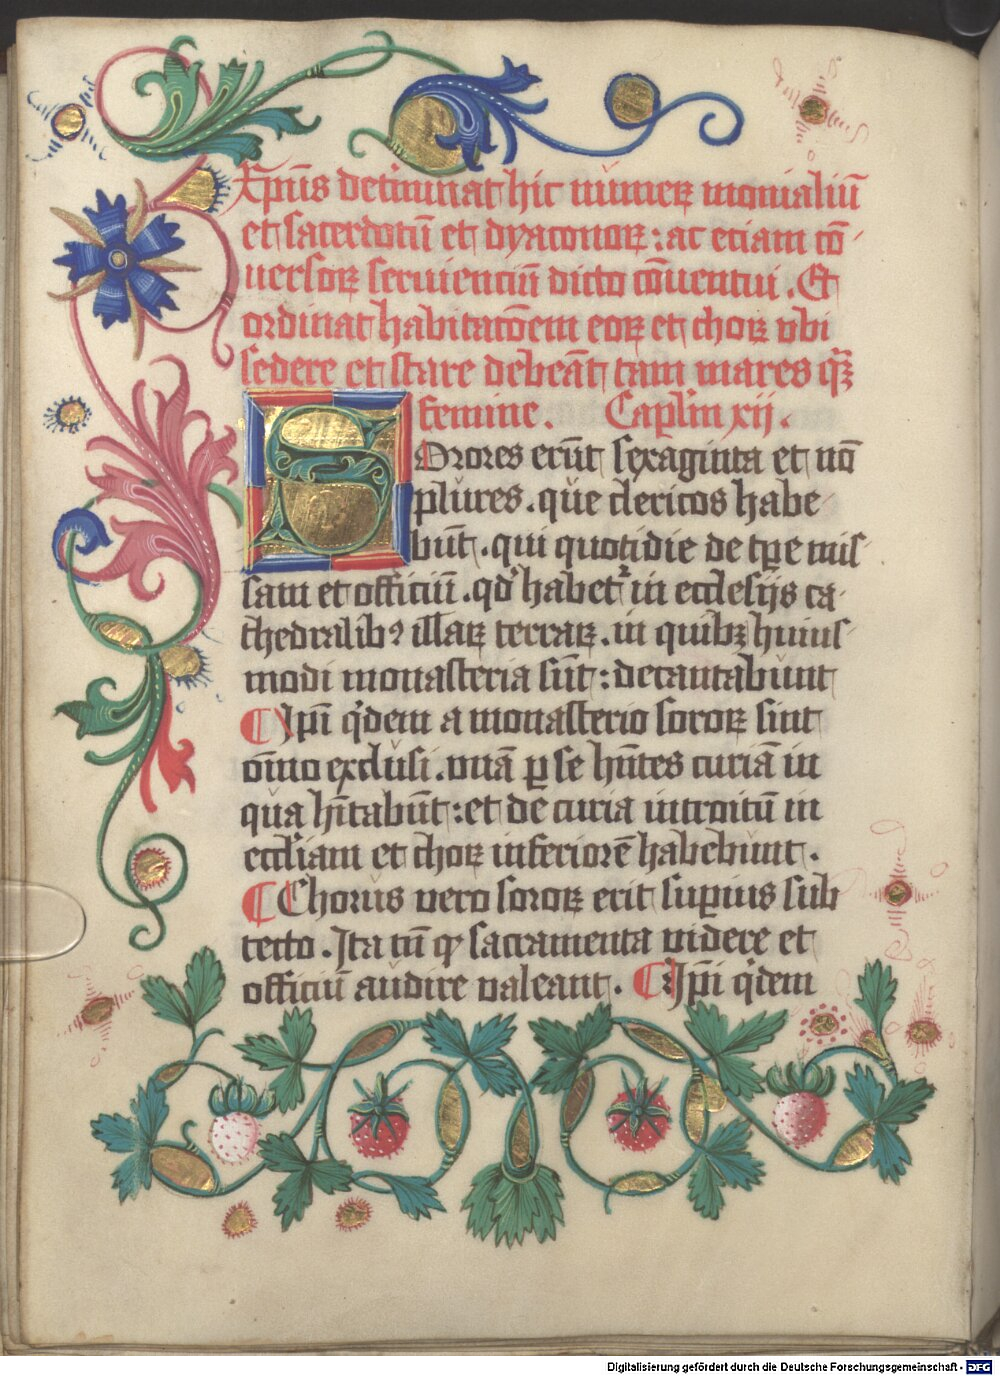 Xp̄us det̄minat hic nūmeꝝ monialiū
et sacerdotū et dyaconoꝝ : ac etiam cō-
uersoꝝ seruienciū dicto cōuentui . Et
ordinat habitatōem eoꝝ et choꝝ vbi
sedere et stare debeāt tam mares qᷓꝫ
femine . Capłm xij .
SOrores erūt sexaginta et nō
plures . que clericos habe
būt . qui quotidie de tꝑe mis-
sam et officiū . qd' habet᷑ in ecclesijs ca-
thedralibꝰ illaꝝ terraꝝ . in quibꝫ huius-
modi monasteria sūt : decantabunt
¶ Ip̄i q'dem a monasterio soroꝝ sint
oīno exclusi . vnā ꝑ se hn̄tes curiā in
qua hītabūt : et de curia introitū in
eccłiam et choꝝ inferiorē habebunt .
¶ Chorus vero soroꝝ erit sup̄ius sub
tecto . Ita tn̄ ꝙ sacramenta videre et
officiū audire valeant . ¶ Ip̄i q'dem
Digitalisierung gefördert durch die Deutsche Forschungsgemeinschaft - DFG